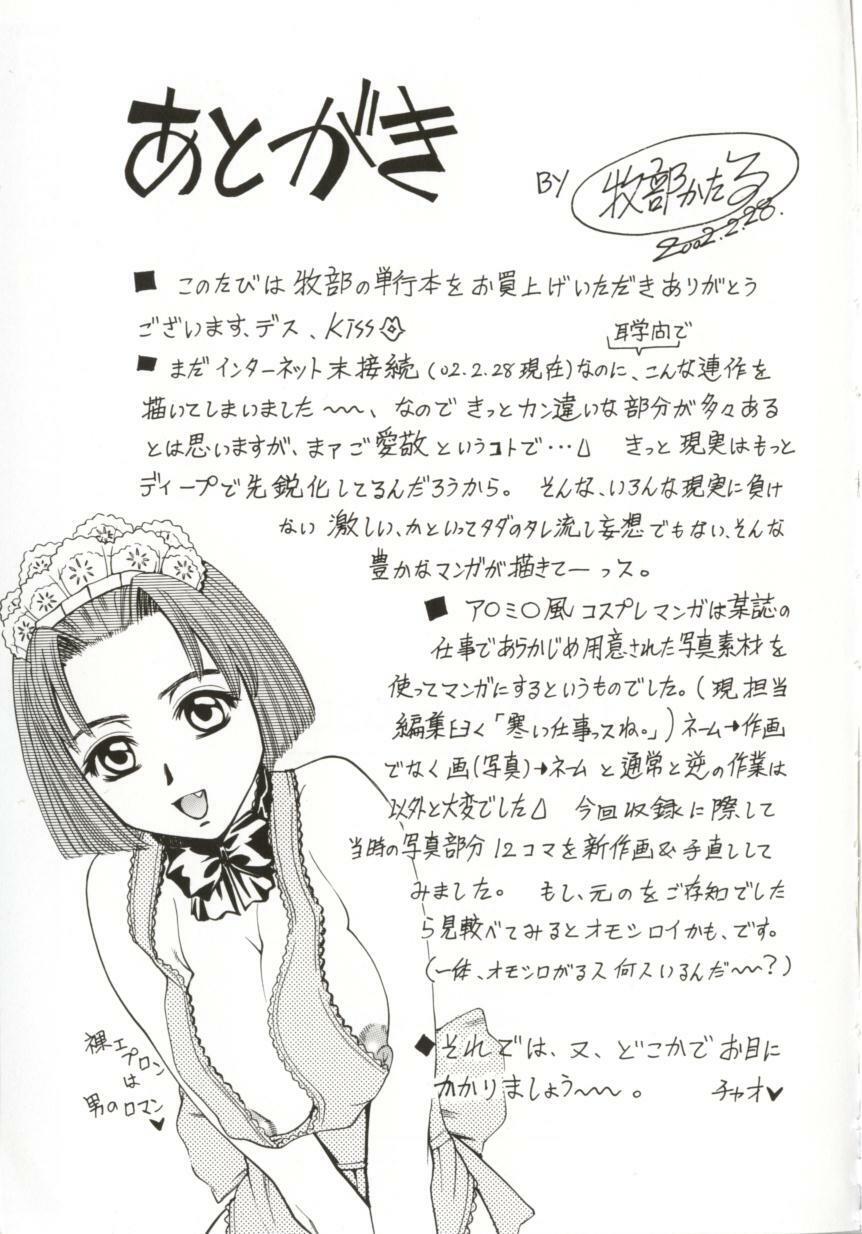 あとがき
BY 牧部かたる
2002.2.28.
■ このたびは牧部の単行本をお買上げいただきありがとう
ございます、デス、Kiss
耳学問で
■ まだインターネット未接続(02.2.28現在)なのに、こんな連作を
描いてしまいました〜〜、なのできっとカン違いな部分が多々ある
とは思いますが、まァご愛敬というコトで… きっと現実はもっと
ディープで先鋭化してるんだろうから。 そんな、いろんな現実に負け
ない激しい、かといってタダのタレ流し妄想でもない、そんな
豊かなマンガが描きてーっス。
■ ア○ミ○風コスプレマンガは某誌の
仕事であらかじめ用意された写真素材を
使ってマンガにするというものでした。(現担当
編集曰く「寒い仕事っスね。」)ネーム→作画
でなく画(写真)→ネームと通常と逆の作業は
以外と大変でした 今回収録に際して
当時の写真部分12コマを新作画&手直しして
みました。 もし、元のをご存知でした
ら見較べてみるとオモシロイかも、です。
(一体、オモシロがるス何スいるんだ〜〜?)
◆それでは、又、どこかでお目に
かかりましょう〜〜。 チャオ♥
裸エプロン
は
男のロマン
♥